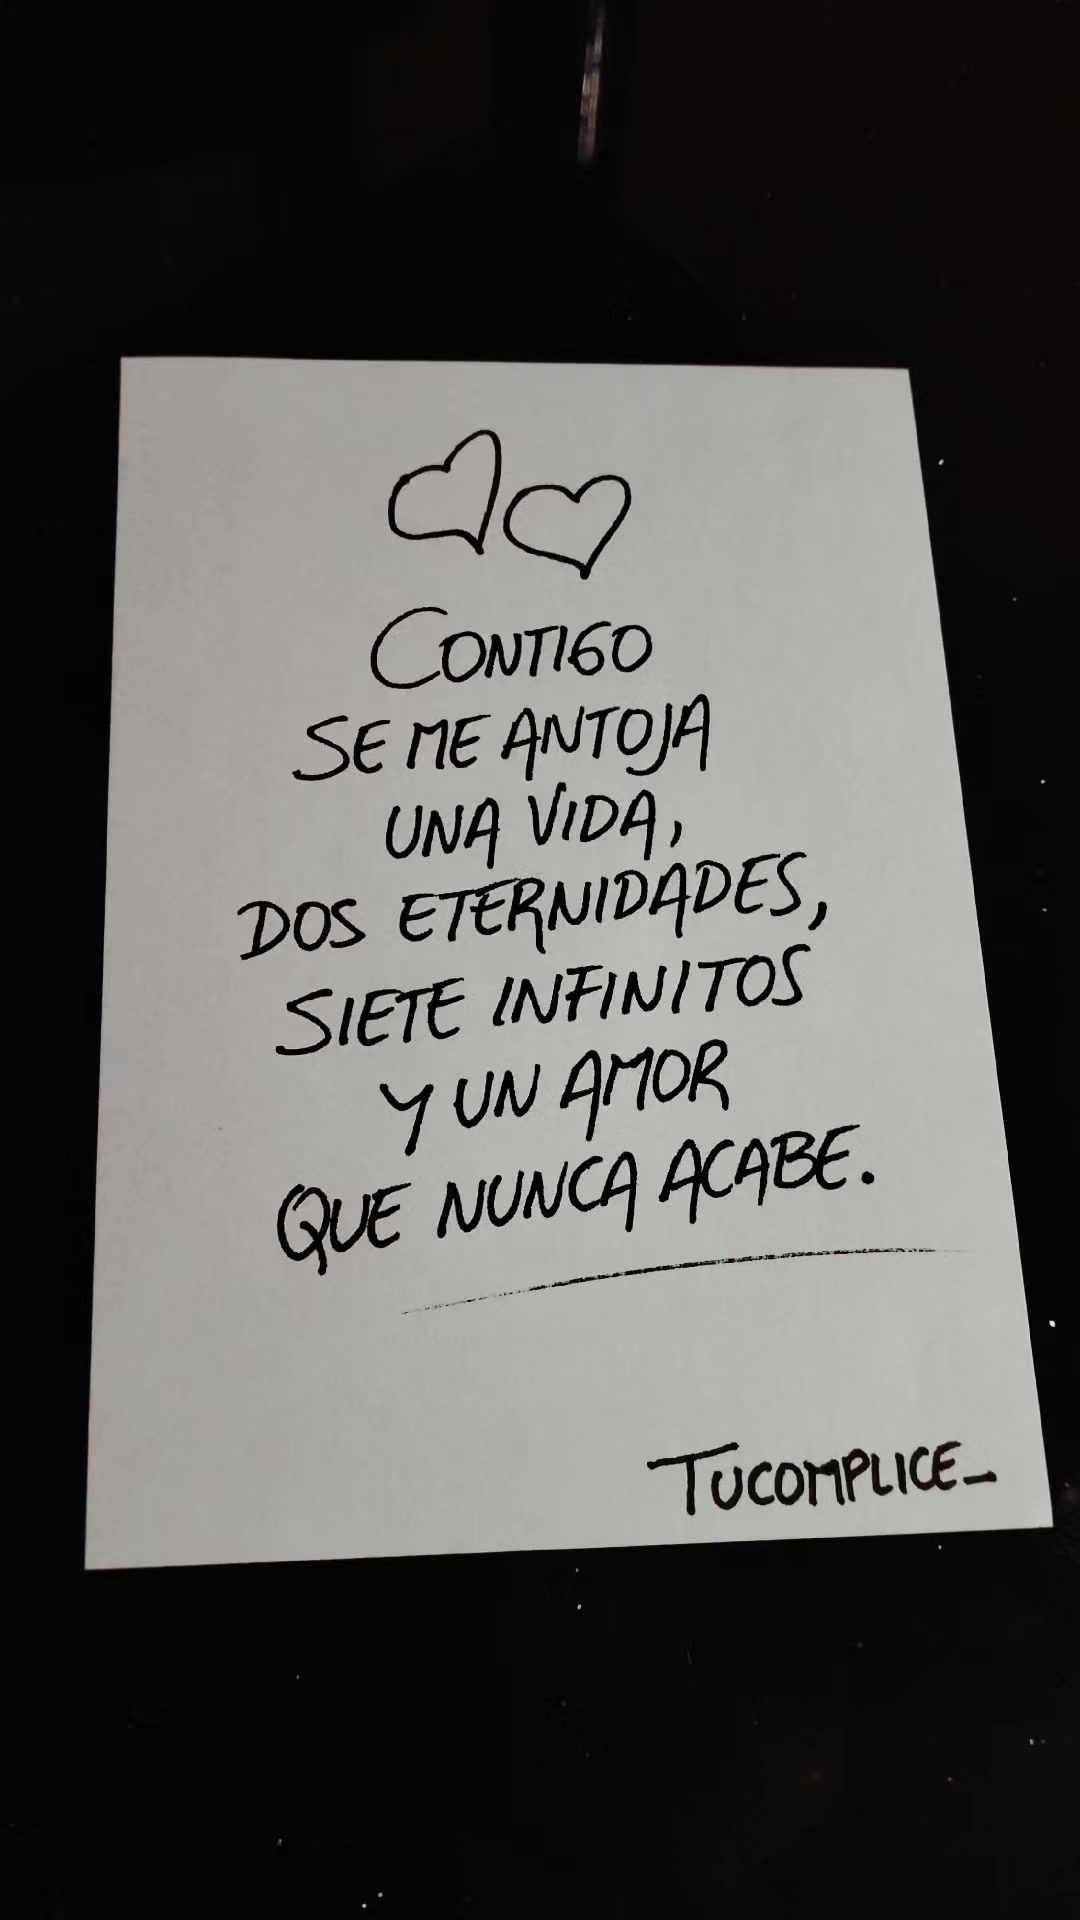 CONTIGO
SE ME ANTOJA
UNA VIDA,
DOS ETERNIDADES,
SIETE INFINITOS
Y UN AMOR
QUE NUNCA ACABE.
TUCOMPLICE_